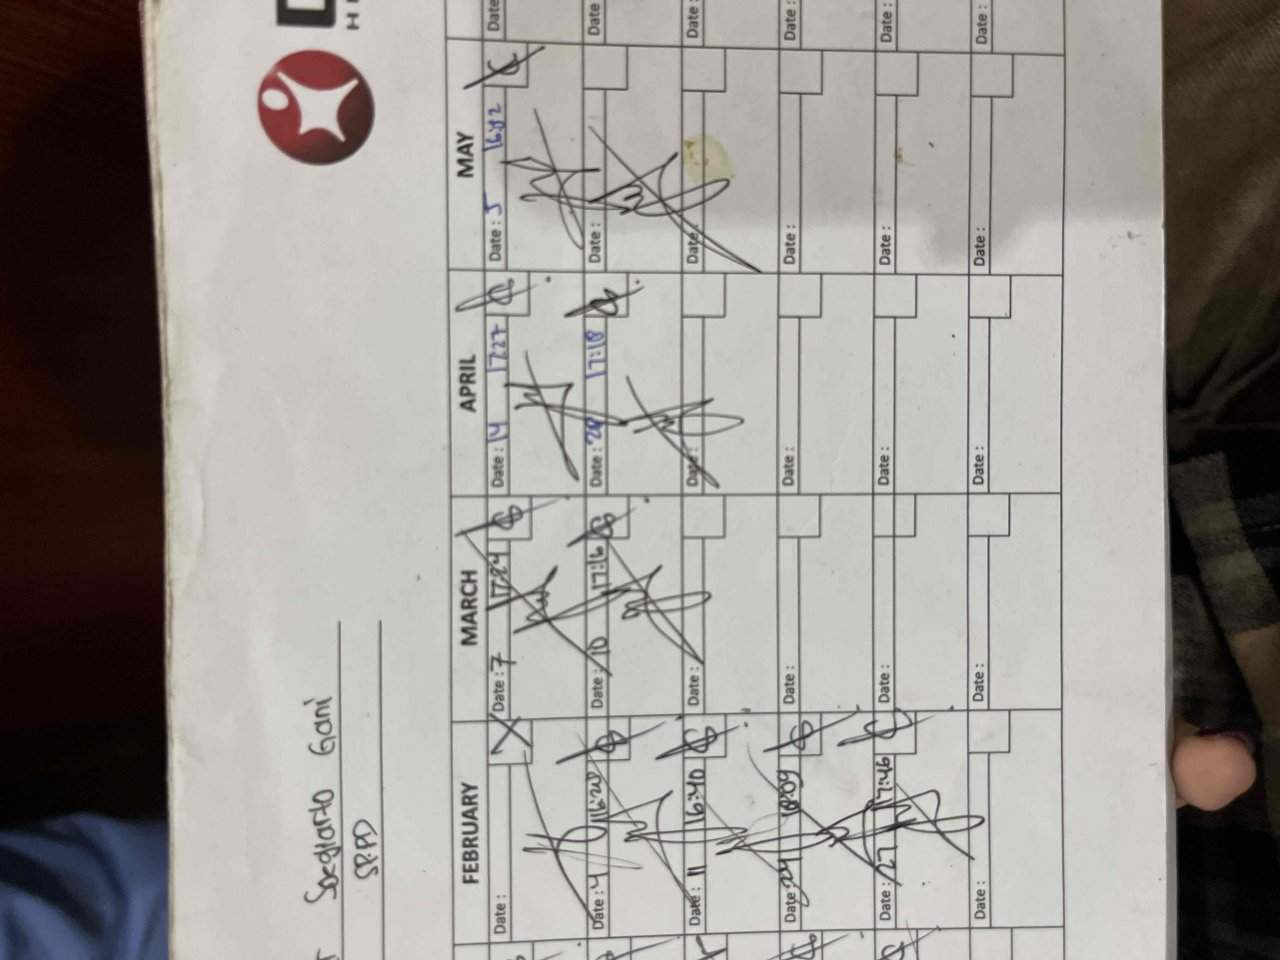 Soegiarto Gani
SP.PD
FEBRUARY MARCH APRIL MAY
Date : Date : 7 17:24 Date : 14 17:27 Date : 5 Date :
Date : 4 16:28 Date : 10 17:16 Date : 28 17:18 Date : Date :
Date : 11 16:40 Date : Date : Date : Date :
Date : 24 Date : Date : Date : Date :
Date : 27 17:46 Date : Date : Date : Date :
Date : Date : Date : Date : Date :